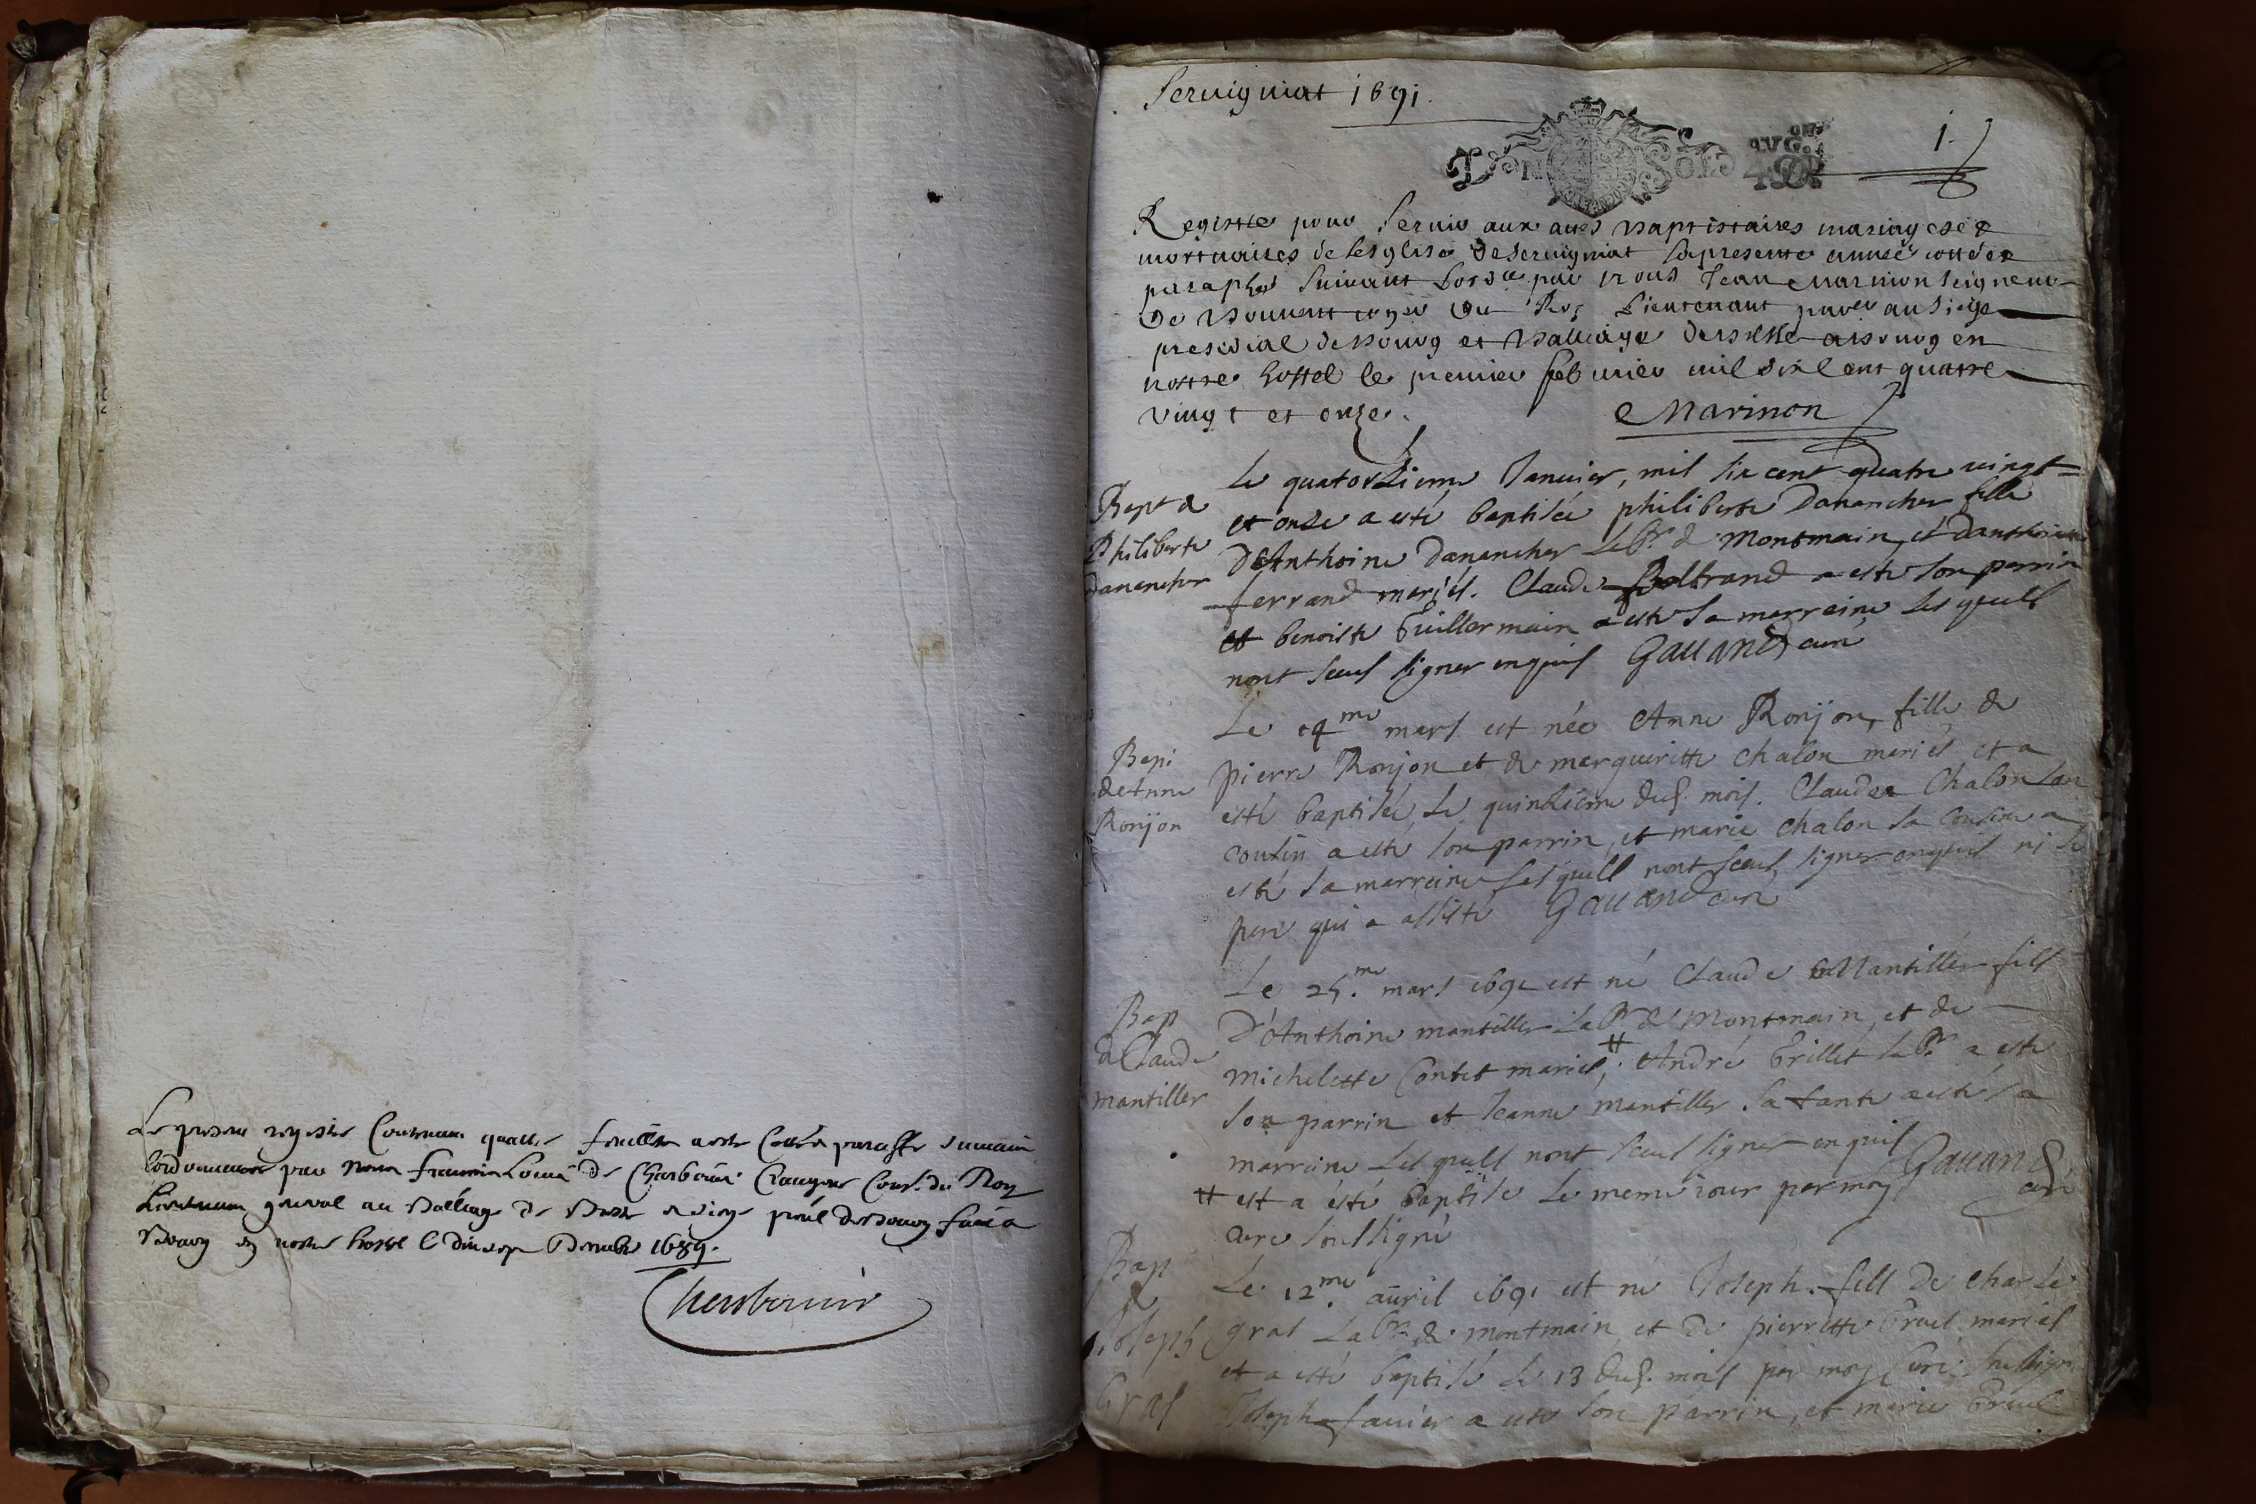 Le present registre Contenant quattre feuillets a esté Cotté et paraffé suivant
l'ordonnance par Nous François Louis de Charbonnier Crangeac Cons.r du Roy
Lieutenant general au Balliage de Bresse et siege p.nl de Bourg fait a
Bourg en nostre hostel le Decembre 1689.
Charbonnier
Seruigniat 1691.
1.
DEN SOLS
Registre pour Seruir aux actes Baptistaires mariages et
mortuaires de lesglise de Seruigniat la presente année cotté et
paraphé suiuant Lord.ce par nous Jean Marinon seigneur
De du Roy Lieutenant au siege
presidial de Bourg et Balliage de Bresse a Bourg en
nostre hostel le premier febvrier mil six Cent quatre
vingt et onze.
Marinon
Bapt de
Philiberte
Danancher
Le quatorsieme Januier, mil six cent quatre vingt=
et onze a esté baptisée philiberte Danancher fille
D'Anthoine Danancher Lab.r de Montmain, et Danthoinette
ferrand mariés. Claude Beltrand a esté son parrin
et benoiste Guillermain a esté sa marreine Lesquels
nont sceus signer enquis Gauand curé
Bapt
de Anne
Ronjon
Le 14.me mars est née Anne Ronjon, fille de
pierre Ronjon et de marguerite Chalon mariés et a
esté baptisée Le quinsieme dud. mois. Claude Chalon son
cousin a esté son parrin, et marie Chalon sa cousine a
esté sa marreine Lesquels nont sceus signer enquis ni le
pere qui a assisté Gauand curé
Bap
de Claude
mantiller
Le 25.me mars 1691 est né Claude Mantiller fils
D'Anthoine mantiller Lab.r de Montmain, et de
Michelette Contet mariés, # André Grillet lab.r a esté
son parrin et Jeanne mantiller sa tante a esté sa
marreine Lesquels nont sceus signer enquis
Gauand
curé
# est a ésté baptisé le meme iour par moy
curé soussigné
Bap
de
Joseph
Gras
Le 12.me auril 1691 est né Joseph fils de Charle
gras Lab.r de montmain et de pierrette Gruel mariés
et a esté baptisé le 13 dud. mois par moy Curé soussigné
Joseph fauier a esté son parrin, et marie Gruel